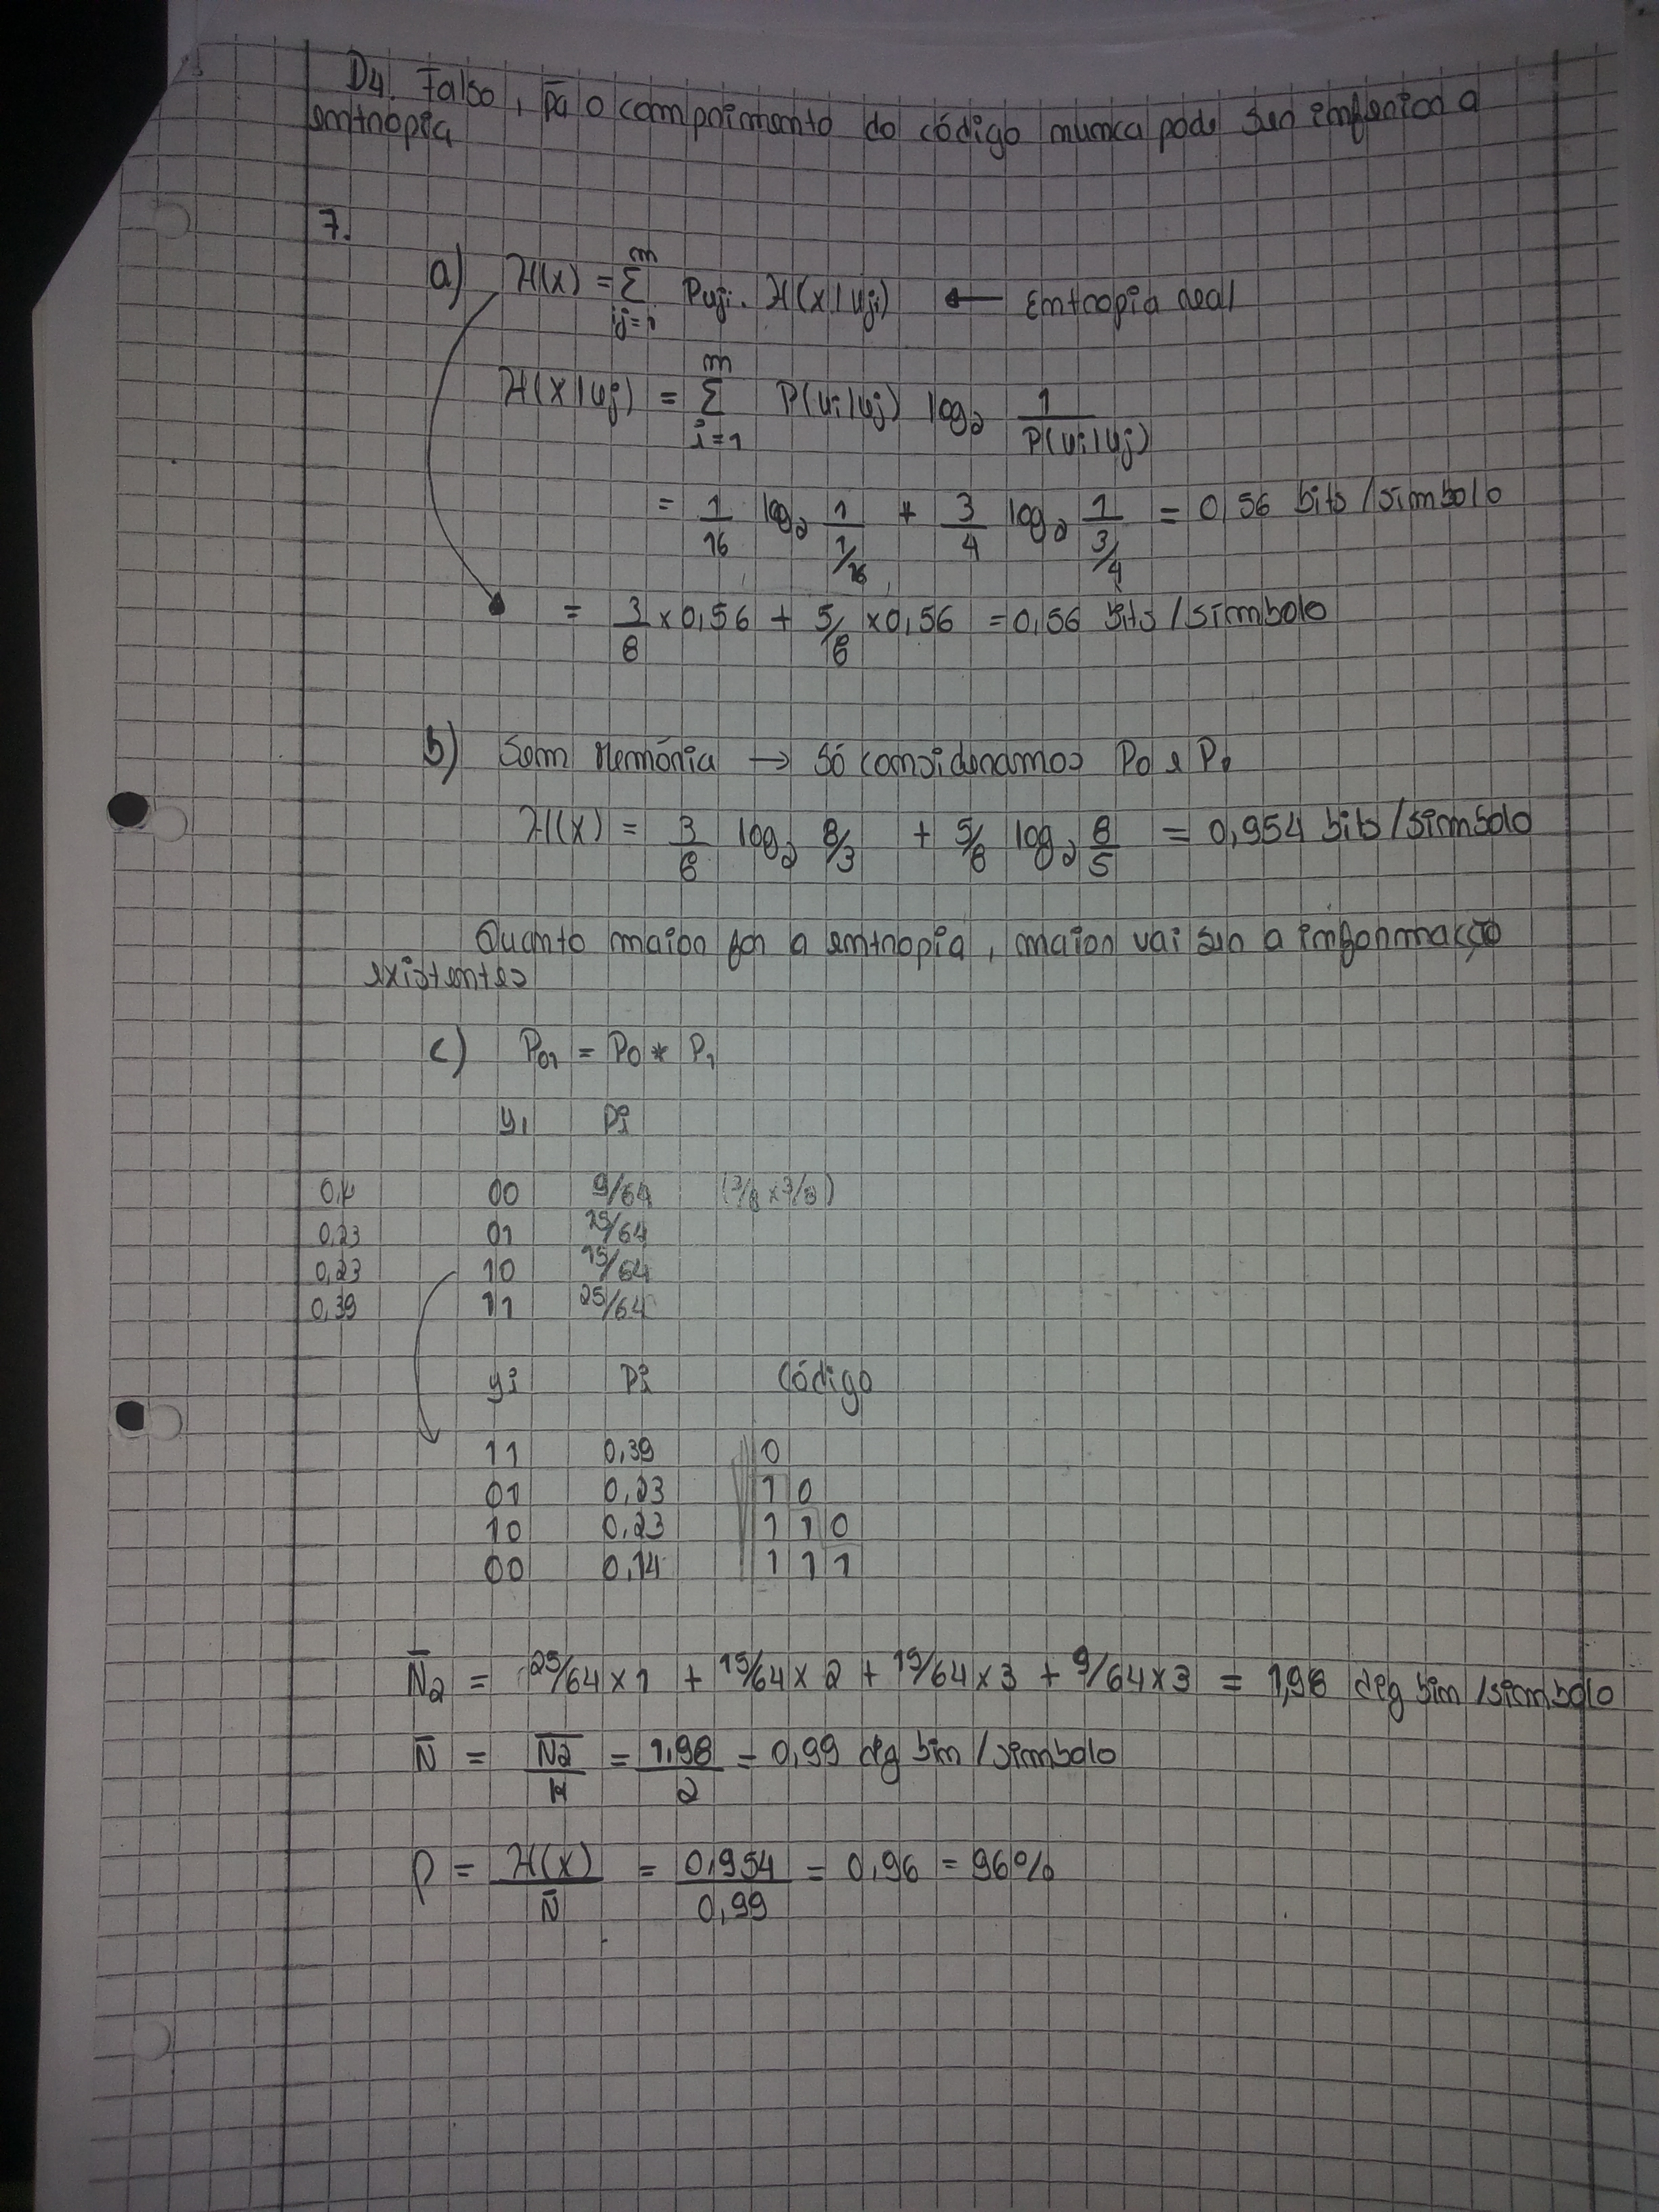 D4. Falso, pa o comprimento do código nunca pode ser inferior a
entropia
7.
a) H(x) = Σ m j=i Puji . H(x|uji) ← Entropia real
H(x|uj) = Σ m i=1 P(ui|uj) log2 1/P(ui|uj)
= 1/16 log2 1/(1/16) + 3/4 log2 1/(3/4) = 0,56 bits/simbolo
= 3/8 x 0,56 + 5/8 x 0,56 = 0,56 bits/simbolo
b) Sem Memória → Só consideramos P0 e P1
H(x) = 3/8 log2 8/3 + 5/8 log2 8/5 = 0,954 bits/simbolo
Quanto maior for a entropia, maior vai ser a informação
existentes
c) P01 = P0 * P1
yi Pi
0,14 00 9/64 (3/8 x 3/8)
0,23 01 15/64
0,23 10 15/64
0,39 11 25/64
yi Pi Código
11 0,39 0
01 0,23 1 0
10 0,23 1 1 0
00 0,14 1 1 1
N̄2 = 25/64 x 1 + 15/64 x 2 + 15/64 x 3 + 9/64 x 3 = 1,98 dig bin/simbolo
N̄ = N̄2/K = 1,98/2 = 0,99 dig bin/simbolo
ρ = H(x)/N̄ = 0,954/0,99 = 0,96 = 96%